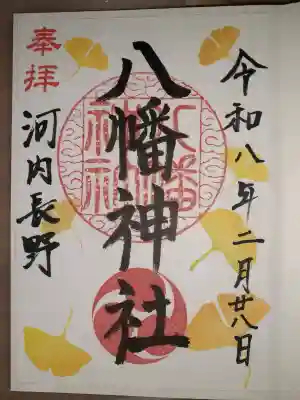 令和八年二月廿八日
八幡神社
八幡
神社
奉拝
河内長野